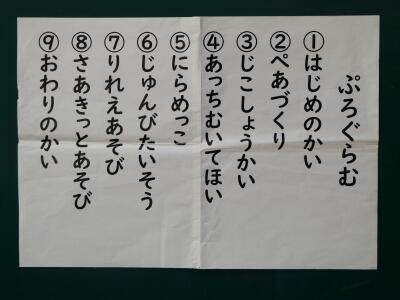 ぷろぐらむ
①はじめのかい
②ぺあづくり
③じこしょうかい
④あっちむいてほい
⑤にらめっこ
⑥じゅんびたいそう
⑦りれえあそび
⑧さあきっとあそび
⑨おわりのかい